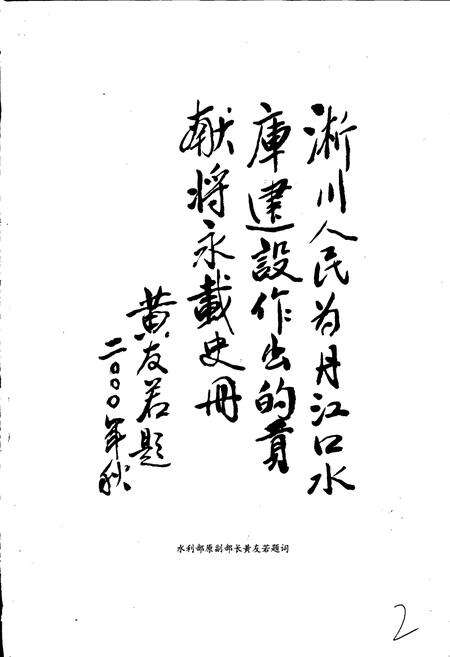 淅川人民为丹江口水
庫建設作出的貢
献将永載史冊
黄友若題
二〇〇〇年秋
水利部原副部长黄友若题词
2